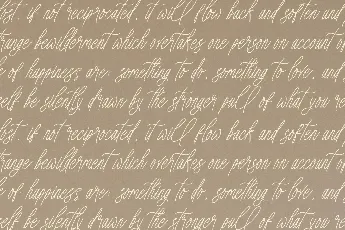 lost. if not reciprocated, it will flow back and soften and
range bewilderment which overtakes one person on account o
of happiness are: something to do, something to love, and
self be silently drawn by the stronger pull of what you re
lost. if not reciprocated, it will flow back and soften and
range bewilderment which overtakes one person on account o
of happiness are: something to do, something to love, and
self be silently drawn by the stronger pull of what you re